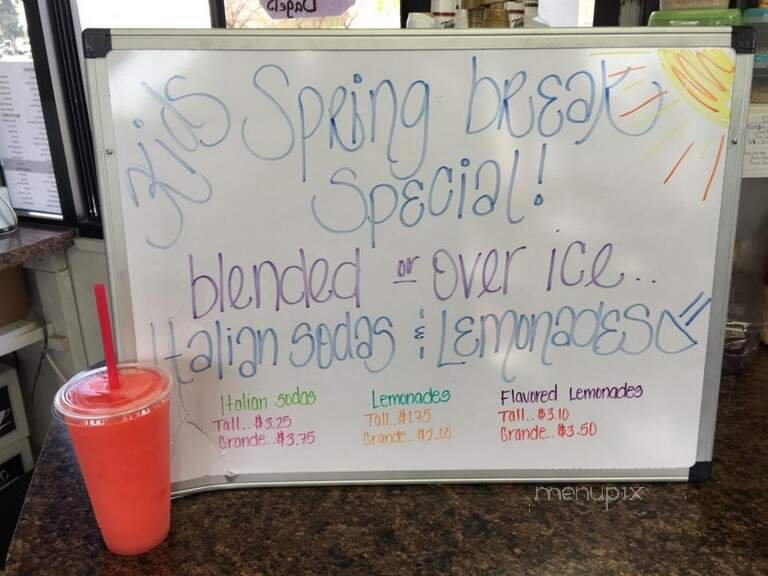 Bagels
Kids Spring break
Special!
blended or over ice..
Italian sodas & Lemonades
Italian sodas
Tall.. $3.25
Grande.. $3.75
Lemonades
Tall.. $1.75
Grande.. $2.00
Flavored Lemonades
Tall.. $3.10
Grande.. $3.50
menupix